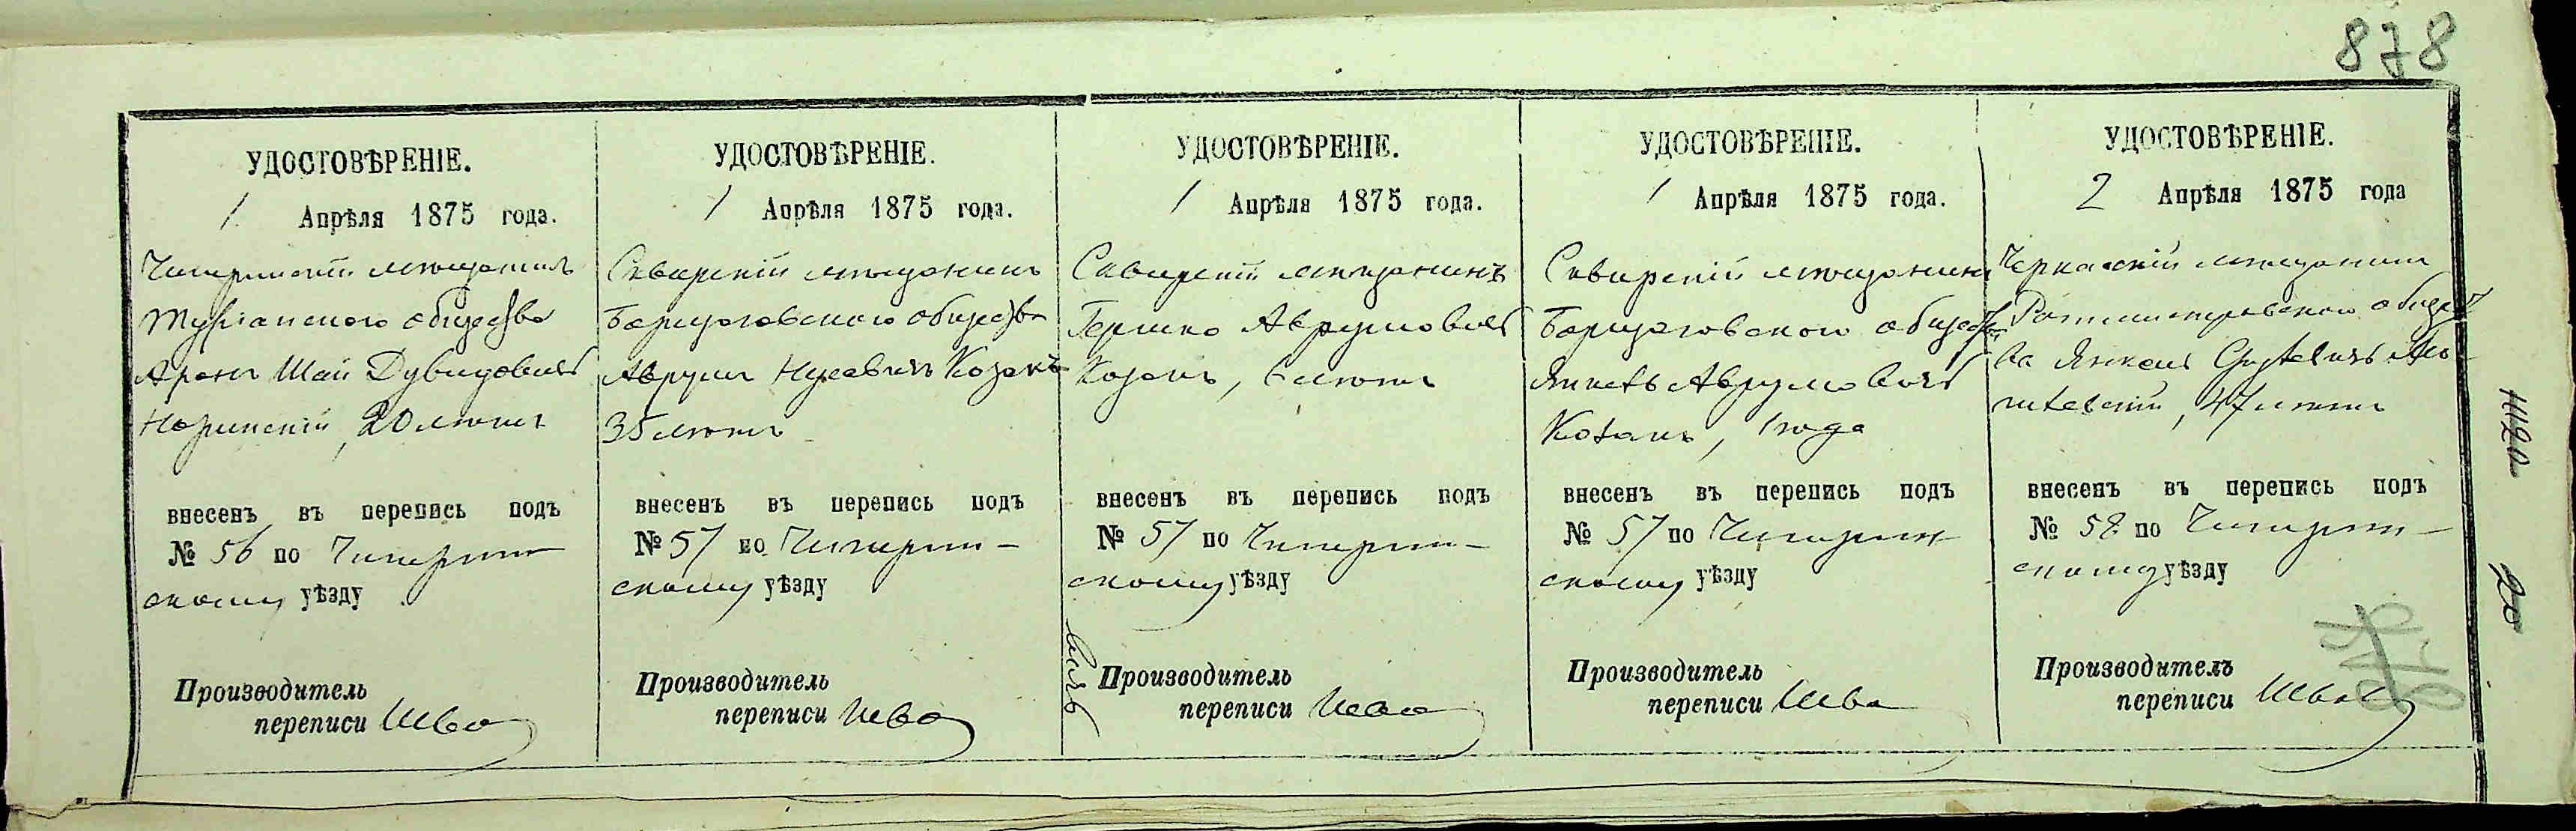 878
УДОСТОВѢРЕНІЕ.
1 Апрѣля 1875 года.
Чигиринскій мѣщанинъ
общества
Аронъ Шая Дувидовичъ
20 лѣтъ
внесенъ въ перепись подъ
№ 56 по Чигирин
скому уѣзду
Производитель
переписи
УДОСТОВѢРЕНІЕ.
1 Апрѣля 1875 года.
Сквирскій мѣщанинъ
Борщаговскаго общества
Аврумъ Козакъ
35 лѣтъ
внесенъ въ перепись подъ
№ 57 по Чигирин-
скому уѣзду
Производитель
переписи
УДОСТОВѢРЕНІЕ.
1 Апрѣля 1875 года.
Сквирскій мѣщанинъ
Гершко Аврумовичъ
Козакъ, 6 лѣтъ
внесенъ въ перепись подъ
№ 57 по Чигирин-
скому уѣзду
Производитель
переписи
УДОСТОВѢРЕНІЕ.
1 Апрѣля 1875 года.
Сквирскій мѣщанинъ
Борщаговскаго общества
Аврумовичъ
Козакъ, 1 года
внесенъ въ перепись подъ
№ 57 по Чигирин
скому уѣзду
Производитель
переписи
УДОСТОВѢРЕНІЕ.
2 Апрѣля 1875 года
Черкаскій мѣщанинъ
Ротмистровскаго общест
ва Янкель
47 лѣтъ
внесенъ въ перепись подъ
№ 58 по Чигирин-
скому уѣзду
Производитель
переписи